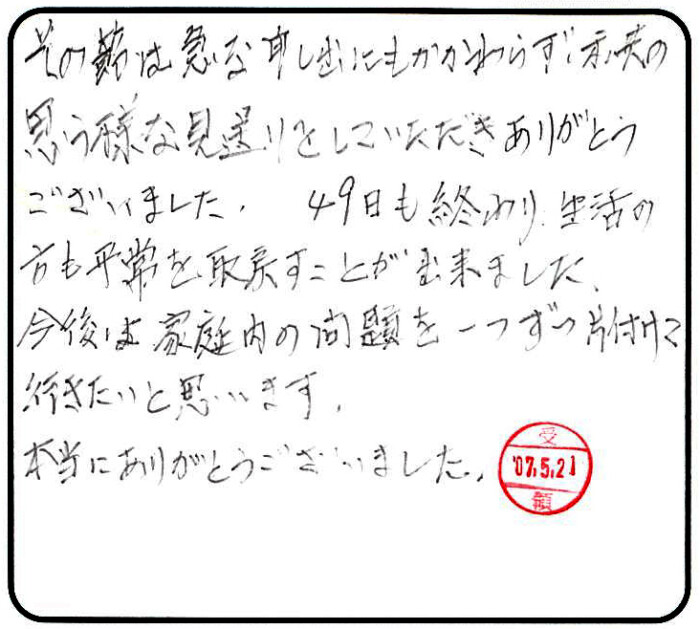 その節は急な申し出にもかかわらず、家族の
思う様な見送りをしていただきありがとう
ございました。 49日も終わり、生活の
方も平常を取戻すことが出来ました。
今後は家庭内の問題を一つずつ片付けて
行きたいと思います。
本当にありがとうございました。
受
'07.5.21
領